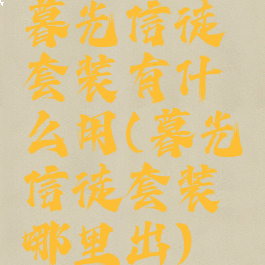 暮光信徒
套装有什
么用(暮光
信徒套装
哪里出)